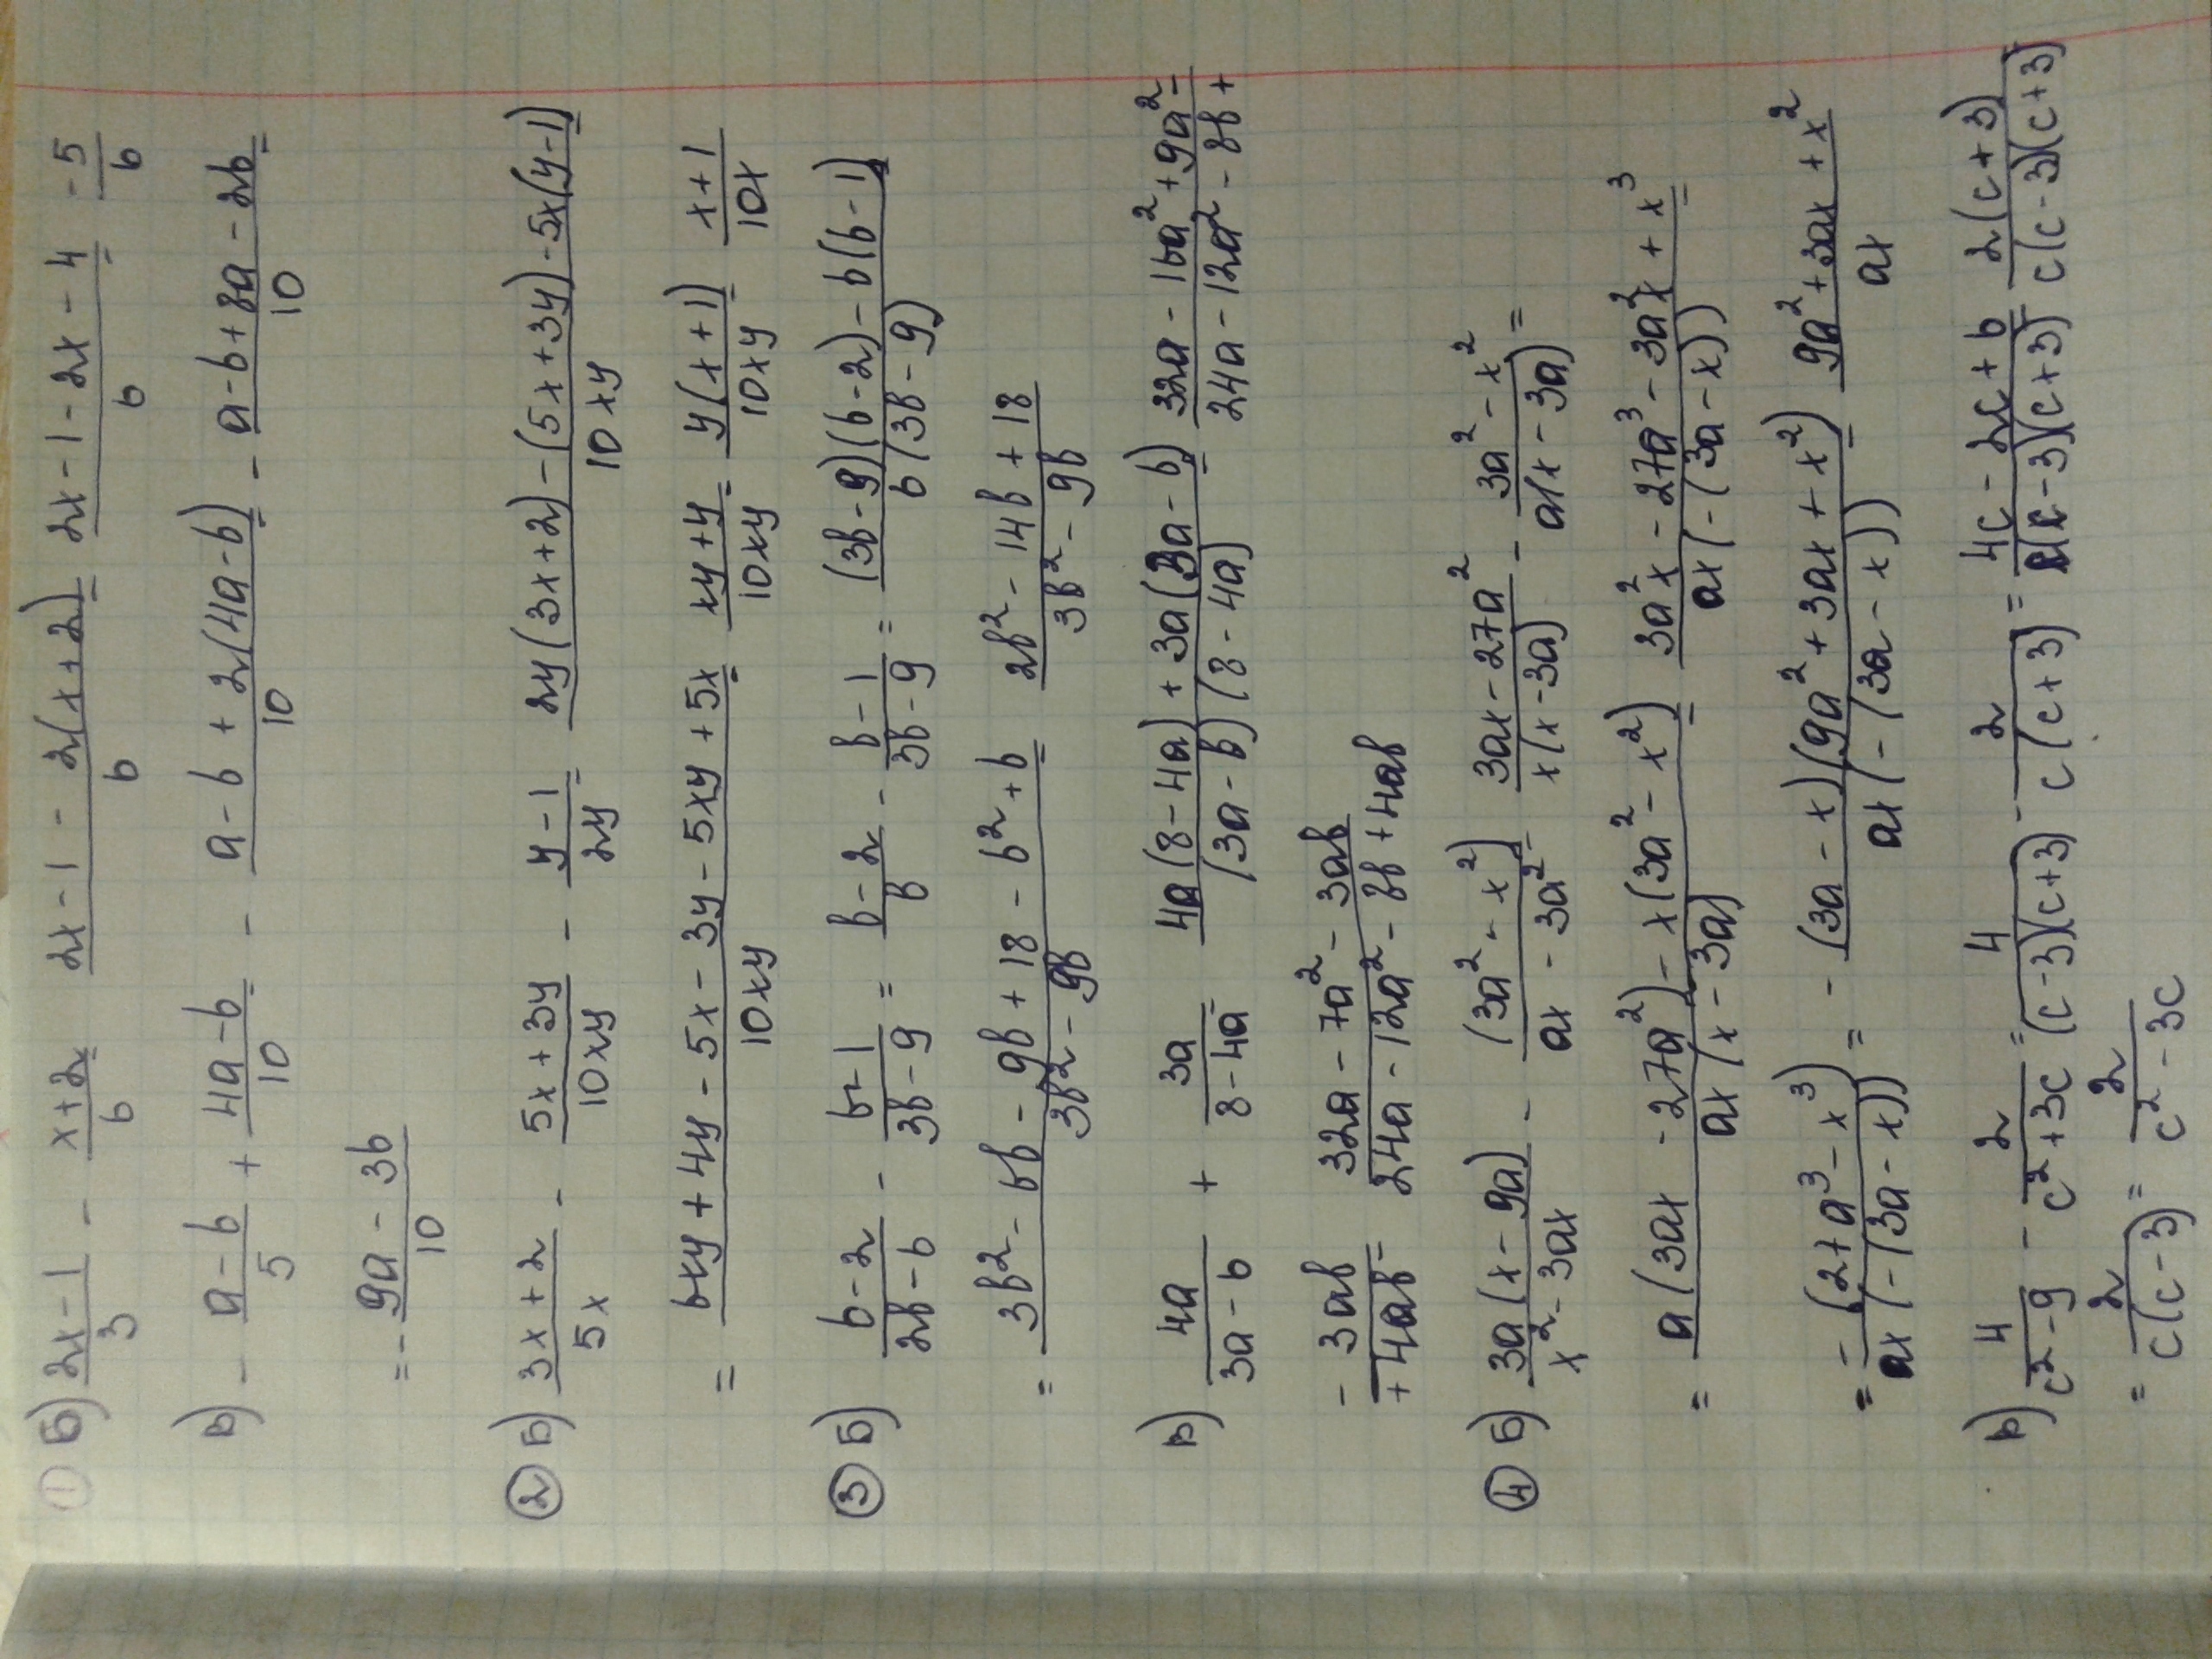 ① Б) (2x-1)/3 - (x+2)/6 = (2x-1-2(x+2))/6 = (2x-1-2x-4)/6 = -5/6
в) - (a-b)/5 + (4a-b)/10 = - (a-b+2(4a-b))/10 = - (a-b+8a-2b)/10 =
= - (9a-3b)/10
② Б) (3x+2)/5x - (5x+3y)/10xy - (y-1)/2y = (2y(3x+2)-(5x+3y)-5x(y-1))/10xy =
= (6xy+4y-5x-3y-5xy+5x)/10xy = (xy+y)/10xy = y(x+1)/10xy = (x+1)/10x
③ Б) (b-2)/(2b-b) - (b-1)/(3b-9) = (b-2)/b - (b-1)/(3b-9) = ((3b-9)(b-2)-b(b-1))/b(3b-9) =
= (3b²-6b-9b+18-b²+b)/(3b²-9b) = (2b²-14b+18)/(3b²-9b)
в) 4a/(3a-b) + 3a/(8-4a) = (4a(8-4a)+3a(3a-b))/(3a-b)(8-4a) = (32a-16a²+9a²-)/(24a-12a²-8b+
(-3ab)/(+4ab) = (32a-7a²-3ab)/(24a-12a²-8b+4ab)
④ Б) 3a(x-9a)/(x²-3ax) - (3a²-x²)/(ax-3a²) = (3ax-27a²)/x(x-3a) - (3a²-x²)/a(x-3a) =
= (a(3ax-27a²)-x(3a²-x²))/ax(x-3a) = (3a²x-27a³-3a²x+x³)/ax(-(3a-x)) =
= -(27a³-x³)/ax(-(3a-x)) = - (3a-x)(9a²+3ax+x²)/ax(-(3a-x)) = (9a²+3ax+x²)/ax
в) 4/(c²-9) - 2/(c²+3c) = 4/(c-3)(c+3) - 2/c(c+3) = (4c-2c+6)/c(c-3)(c+3) = 2(c+3)/c(c-3)(c+3)
= 2/c(c-3) = 2/(c²-3c)